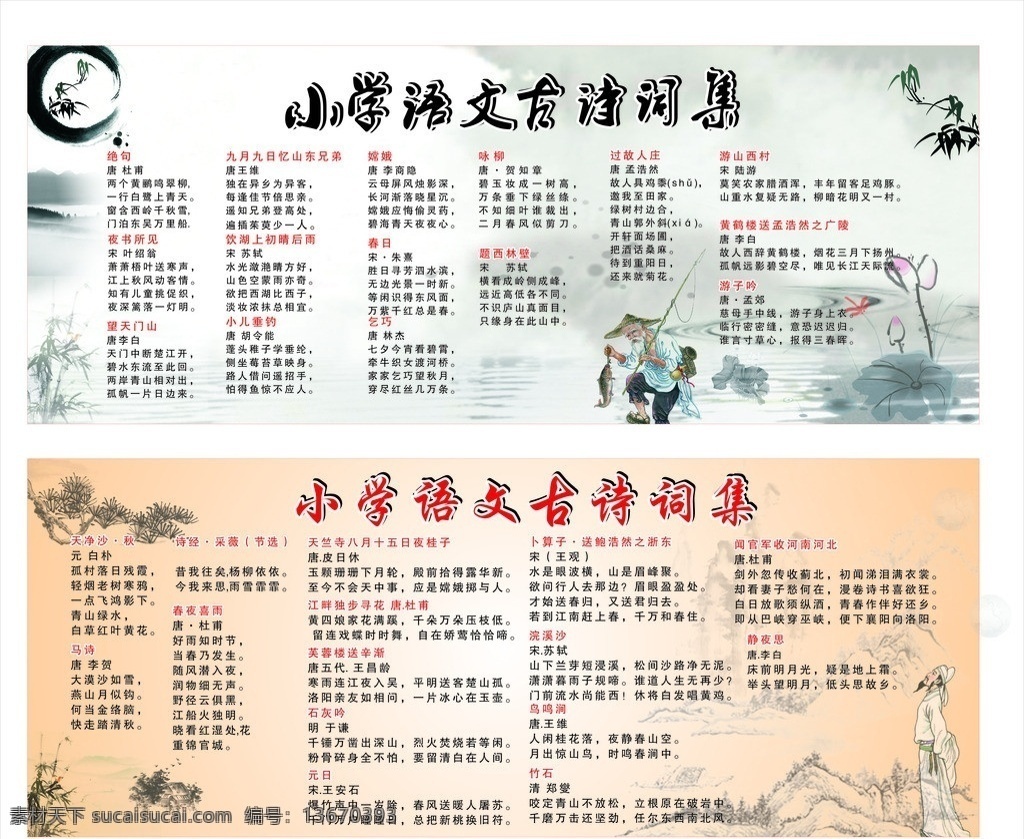 小学语文古诗词集
绝句
唐 杜甫
两个黄鹂鸣翠柳,
一行白鹭上青天。
窗含西岭千秋雪,
门泊东吴万里船。
夜书所见
宋 叶绍翁
萧萧梧叶送寒声,
江上秋风动客情。
知有儿童挑促织,
夜深篱落一灯明。
望天门山
唐李白
天门中断楚江开,
碧水东流至此回。
两岸青山相对出,
孤帆一片日边来。
九月九日忆山东兄弟
唐王维
独在异乡为异客,
每逢佳节倍思亲。
遥知兄弟登高处,
遍插茱萸少一人。
饮湖上初晴后雨
宋 苏轼
水光潋滟晴方好,
山色空蒙雨亦奇。
欲把西湖比西子,
淡妆浓抹总相宜。
小儿垂钓
唐 胡令能
蓬头稚子学垂纶,
侧坐莓苔草映身。
路人借问遥招手,
怕得鱼惊不应人。
嫦娥
唐 李商隐
云母屏风烛影深,
长河渐落晓星沉。
嫦娥应悔偷灵药,
碧海青天夜夜心。
春日
宋·朱熹
胜日寻芳泗水滨,
无边光景一时新。
等闲识得东风面,
万紫千红总是春。
乞巧
唐 林杰
七夕今宵看碧霄,
牵牛织女渡河桥。
家家乞巧望秋月,
穿尽红丝几万条。
咏柳
唐·贺知章
碧玉妆成一树高,
万条垂下绿丝绦。
不知细叶谁裁出,
二月春风似剪刀。
题西林壁
宋 苏轼
横看成岭侧成峰,
远近高低各不同。
不识庐山真面目,
只缘身在此山中。
过故人庄
唐 孟浩然
故人具鸡黍(shǔ),
邀我至田家。
绿树村边合,
青山郭外斜(xiá)。
开轩面场圃,
把酒话桑麻。
待到重阳日,
还来就菊花。
游山西村
宋 陆游
莫笑农家腊酒浑，丰年留客足鸡豚。
山重水复疑无路，柳暗花明又一村。
黄鹤楼送孟浩然之广陵
唐 李白
故人西辞黄鹤楼，烟花三月下扬州。
孤帆远影碧空尽，唯见长江天际流。
游子吟
唐·孟郊
慈母手中线，游子身上衣。
临行密密缝，意恐迟迟归。
谁言寸草心，报得三春晖。
小学语文古诗词集
天净沙·秋
元 白朴
孤村落日残霞,
轻烟老树寒鸦,
一点飞鸿影下。
青山绿水,
白草红叶黄花。
马诗
唐 李贺
大漠沙如雪,
燕山月似钩。
何当金络脑,
快走踏清秋。
诗经·采薇（节选）
昔我往矣,杨柳依依。
今我来思,雨雪霏霏。
春夜喜雨
唐·杜甫
好雨知时节,
当春乃发生。
随风潜入夜,
润物细无声。
野径云俱黑,
江船火独明。
晓看红湿处,花
重锦官城。
天竺寺八月十五日夜桂子
唐.皮日休
玉颗珊珊下月轮，殿前拾得露华新。
至今不会天中事，应是嫦娥掷与人。
江畔独步寻花 唐.杜甫
黄四娘家花满蹊，千朵万朵压枝低。
留连戏蝶时时舞，自在娇莺恰恰啼。
芙蓉楼送辛渐
唐五代. 王昌龄
寒雨连江夜入吴，平明送客楚山孤。
洛阳亲友如相问，一片冰心在玉壶。
石灰吟
明 于谦
千锤万凿出深山，烈火焚烧若等闲。
粉骨碎身全不怕，要留清白在人间。
元日
宋.王安石
爆竹声中一岁除，春风送暖人屠苏。
千门万户曈曈日，总把新桃换旧符。
卜算子·送鲍浩然之浙东
宋（王观）
水是眼波横，山是眉峰聚。
欲问行人去那边？眉眼盈盈处。
才始送春归，又送君归去。
若到江南赶上春，千万和春住。
浣溪沙
宋.苏轼
山下兰芽短浸溪，松间沙路净无泥。
潇潇暮雨子规啼。谁道人生无再少？
门前流水尚能西！休将白发唱黄鸡。
鸟鸣涧
唐.王维
人闲桂花落，夜静春山空。
月出惊山鸟，时鸣春涧中。
竹石
清 郑燮
咬定青山不放松，立根原在破岩中。
千磨万击还坚劲，任尔东西南北风。
闻官军收河南河北
唐.杜甫
剑外忽传收蓟北，初闻涕泪满衣裳。
却看妻子愁何在，漫卷诗书喜欲狂。
白日放歌须纵酒，青春作伴好还乡。
即从巴峡穿巫峡，便下襄阳向洛阳。
静夜思
唐.李白
床前明月光，疑是地上霜。
举头望明月，低头思故乡。
素材天下 sucaisucai.com 编号：13670393